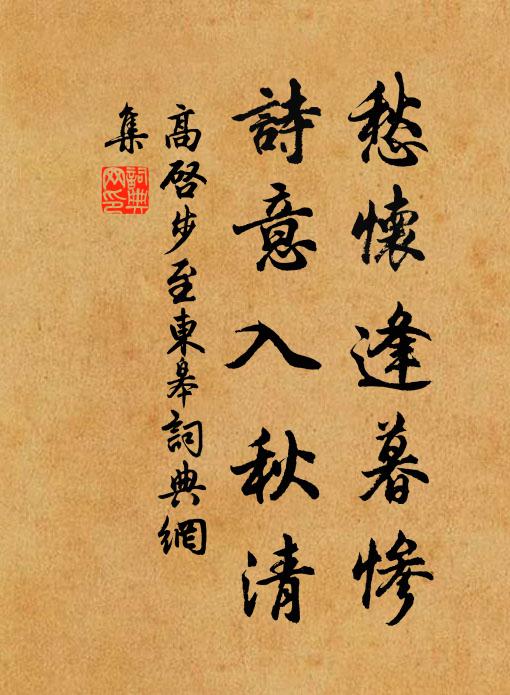 愁懷逢暮慘
詩意入秋清
高啓步至東皋詞典網
集
詞典網印